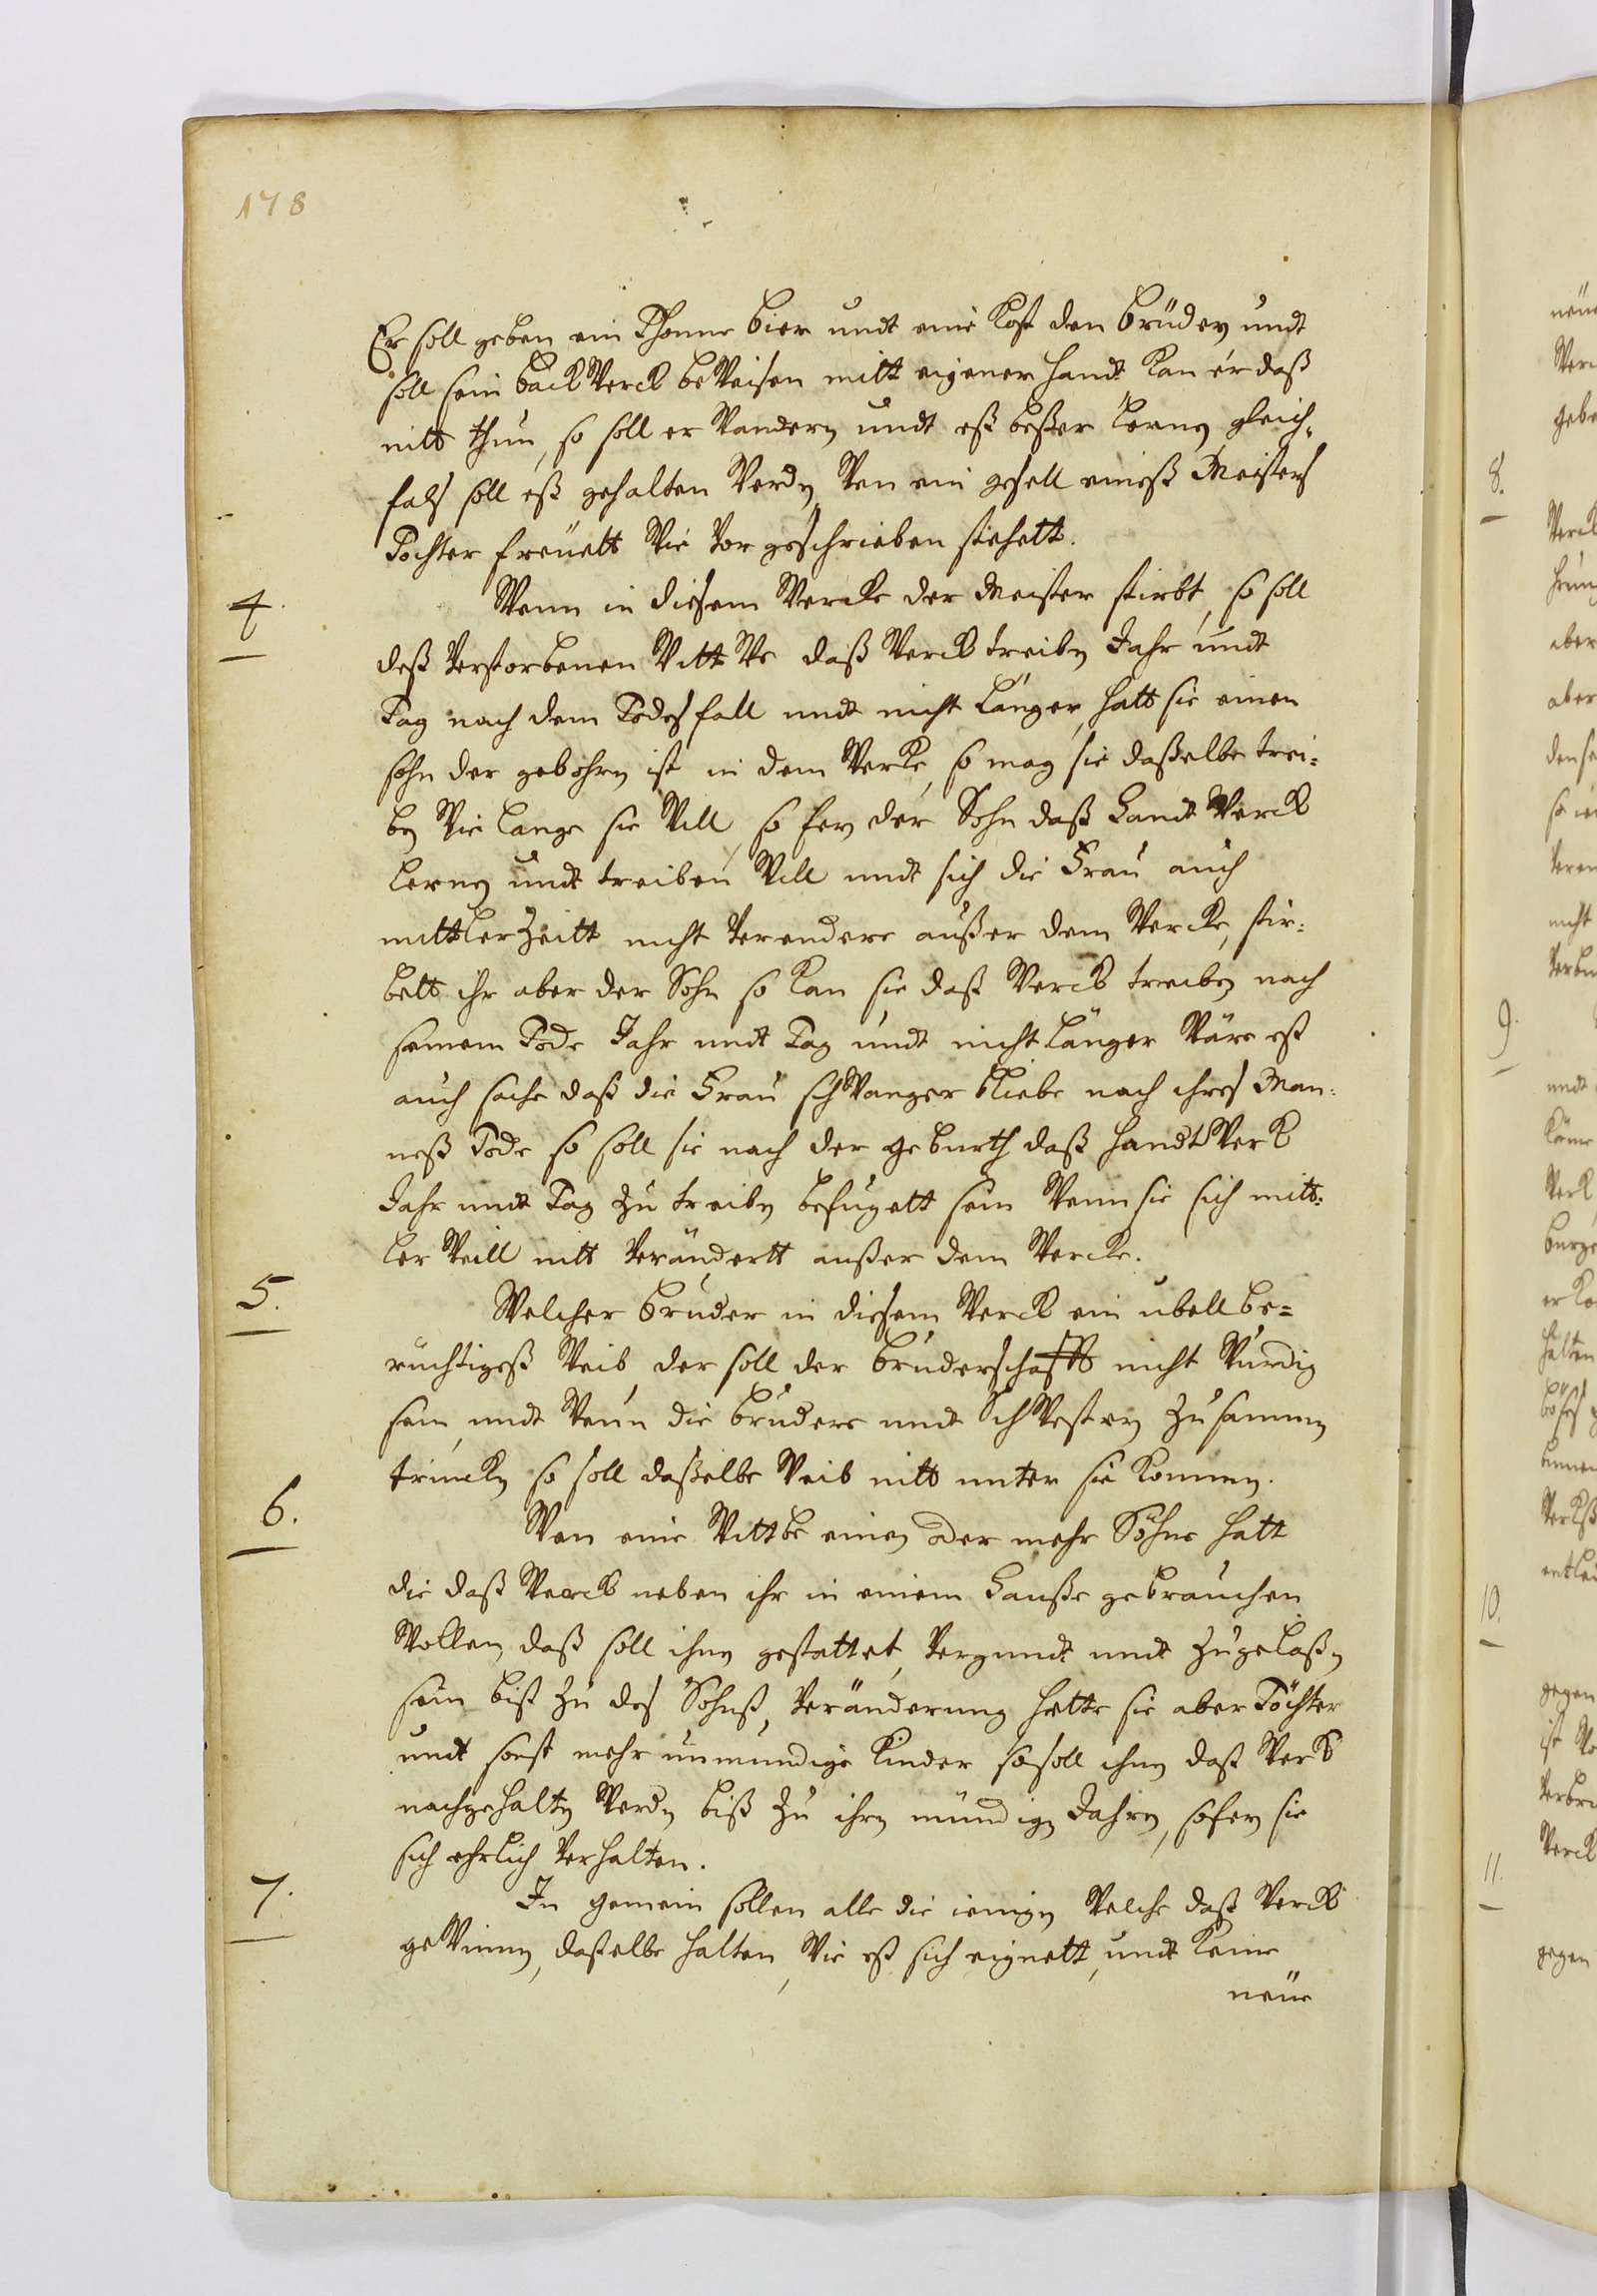 178
Er soll geben ein Thonne bier undt eine Kost den brüdern undt
soll sein backWerck beWeisen mitt eigener handt kan er daß
nitt thun, so soll er Wandern undt eß beßer lernen gleich-
fals soll eß gehalten Werden, Wen ein gesell eineß Meisters
Tochter freuett Wie vor geschrieben stehett.
4. Wenn in diesem Wercke der Meister stirbt, so soll
deß verstorbenen WittWe daß Werck treiben Jahr undt
Tag nach dem Todesfall undt nicht länger, hatt sie einen
sohn der gebohren ist in dem Wercke, so mag sie daßelbe trei-
ben Wie lange sie Will, so fern der Sohn daß HandtWerck
lernen undt treiben Will undt sich die Frau auch
mittlerzeitt nicht verendere außer dem Wercke, stir-
bett ihr aber der Sohn so kan sie daß Werck treiben nach
seinem Tode Jahr undt Tag undt nicht länger Wäre eß
auch sache daß die Frau schWanger bliebe nach ihres Man-
neß Tode so soll sie nach der geburth daß handtWerck
Jahr undt Tag zu treiben befugett sein Wenn sie sich mitt-
ler Weill nitt verändertt außer dem Wercke.
5. Welcher bruder in diesem Werck ein ubell be-
rüchtigeß Weib, der soll der bruderschafft nicht Würdig
sein, undt Wenn die brudere undt SchWestern zusammen
trincken so soll daßelbe Weib nitt unter sie kommen.
6. Wan eine Wittbe einen oder mehr Söhne hatt
die daß Werck neben ihr in einem Hauße gebrauchen
Wollen, daß soll ihnen gestattet, vergundt undt zugelaßen
sein biß zu des Sohnß, veränderung hette sie aber Töchter
undt sonst mehr unmundige Kinder so soll ihnen daß Werck
nachgehalten Werden biß zu ihren mündigen Jahren, sofern sie
sich ehrlich verhalten.
7. In gemein sollen alle die ienigen Welche daß Werck
geWinnen, daßelbe halten, Wie eß sich eignett, undt keine
neue
8.
9.
10.
11.
gegen